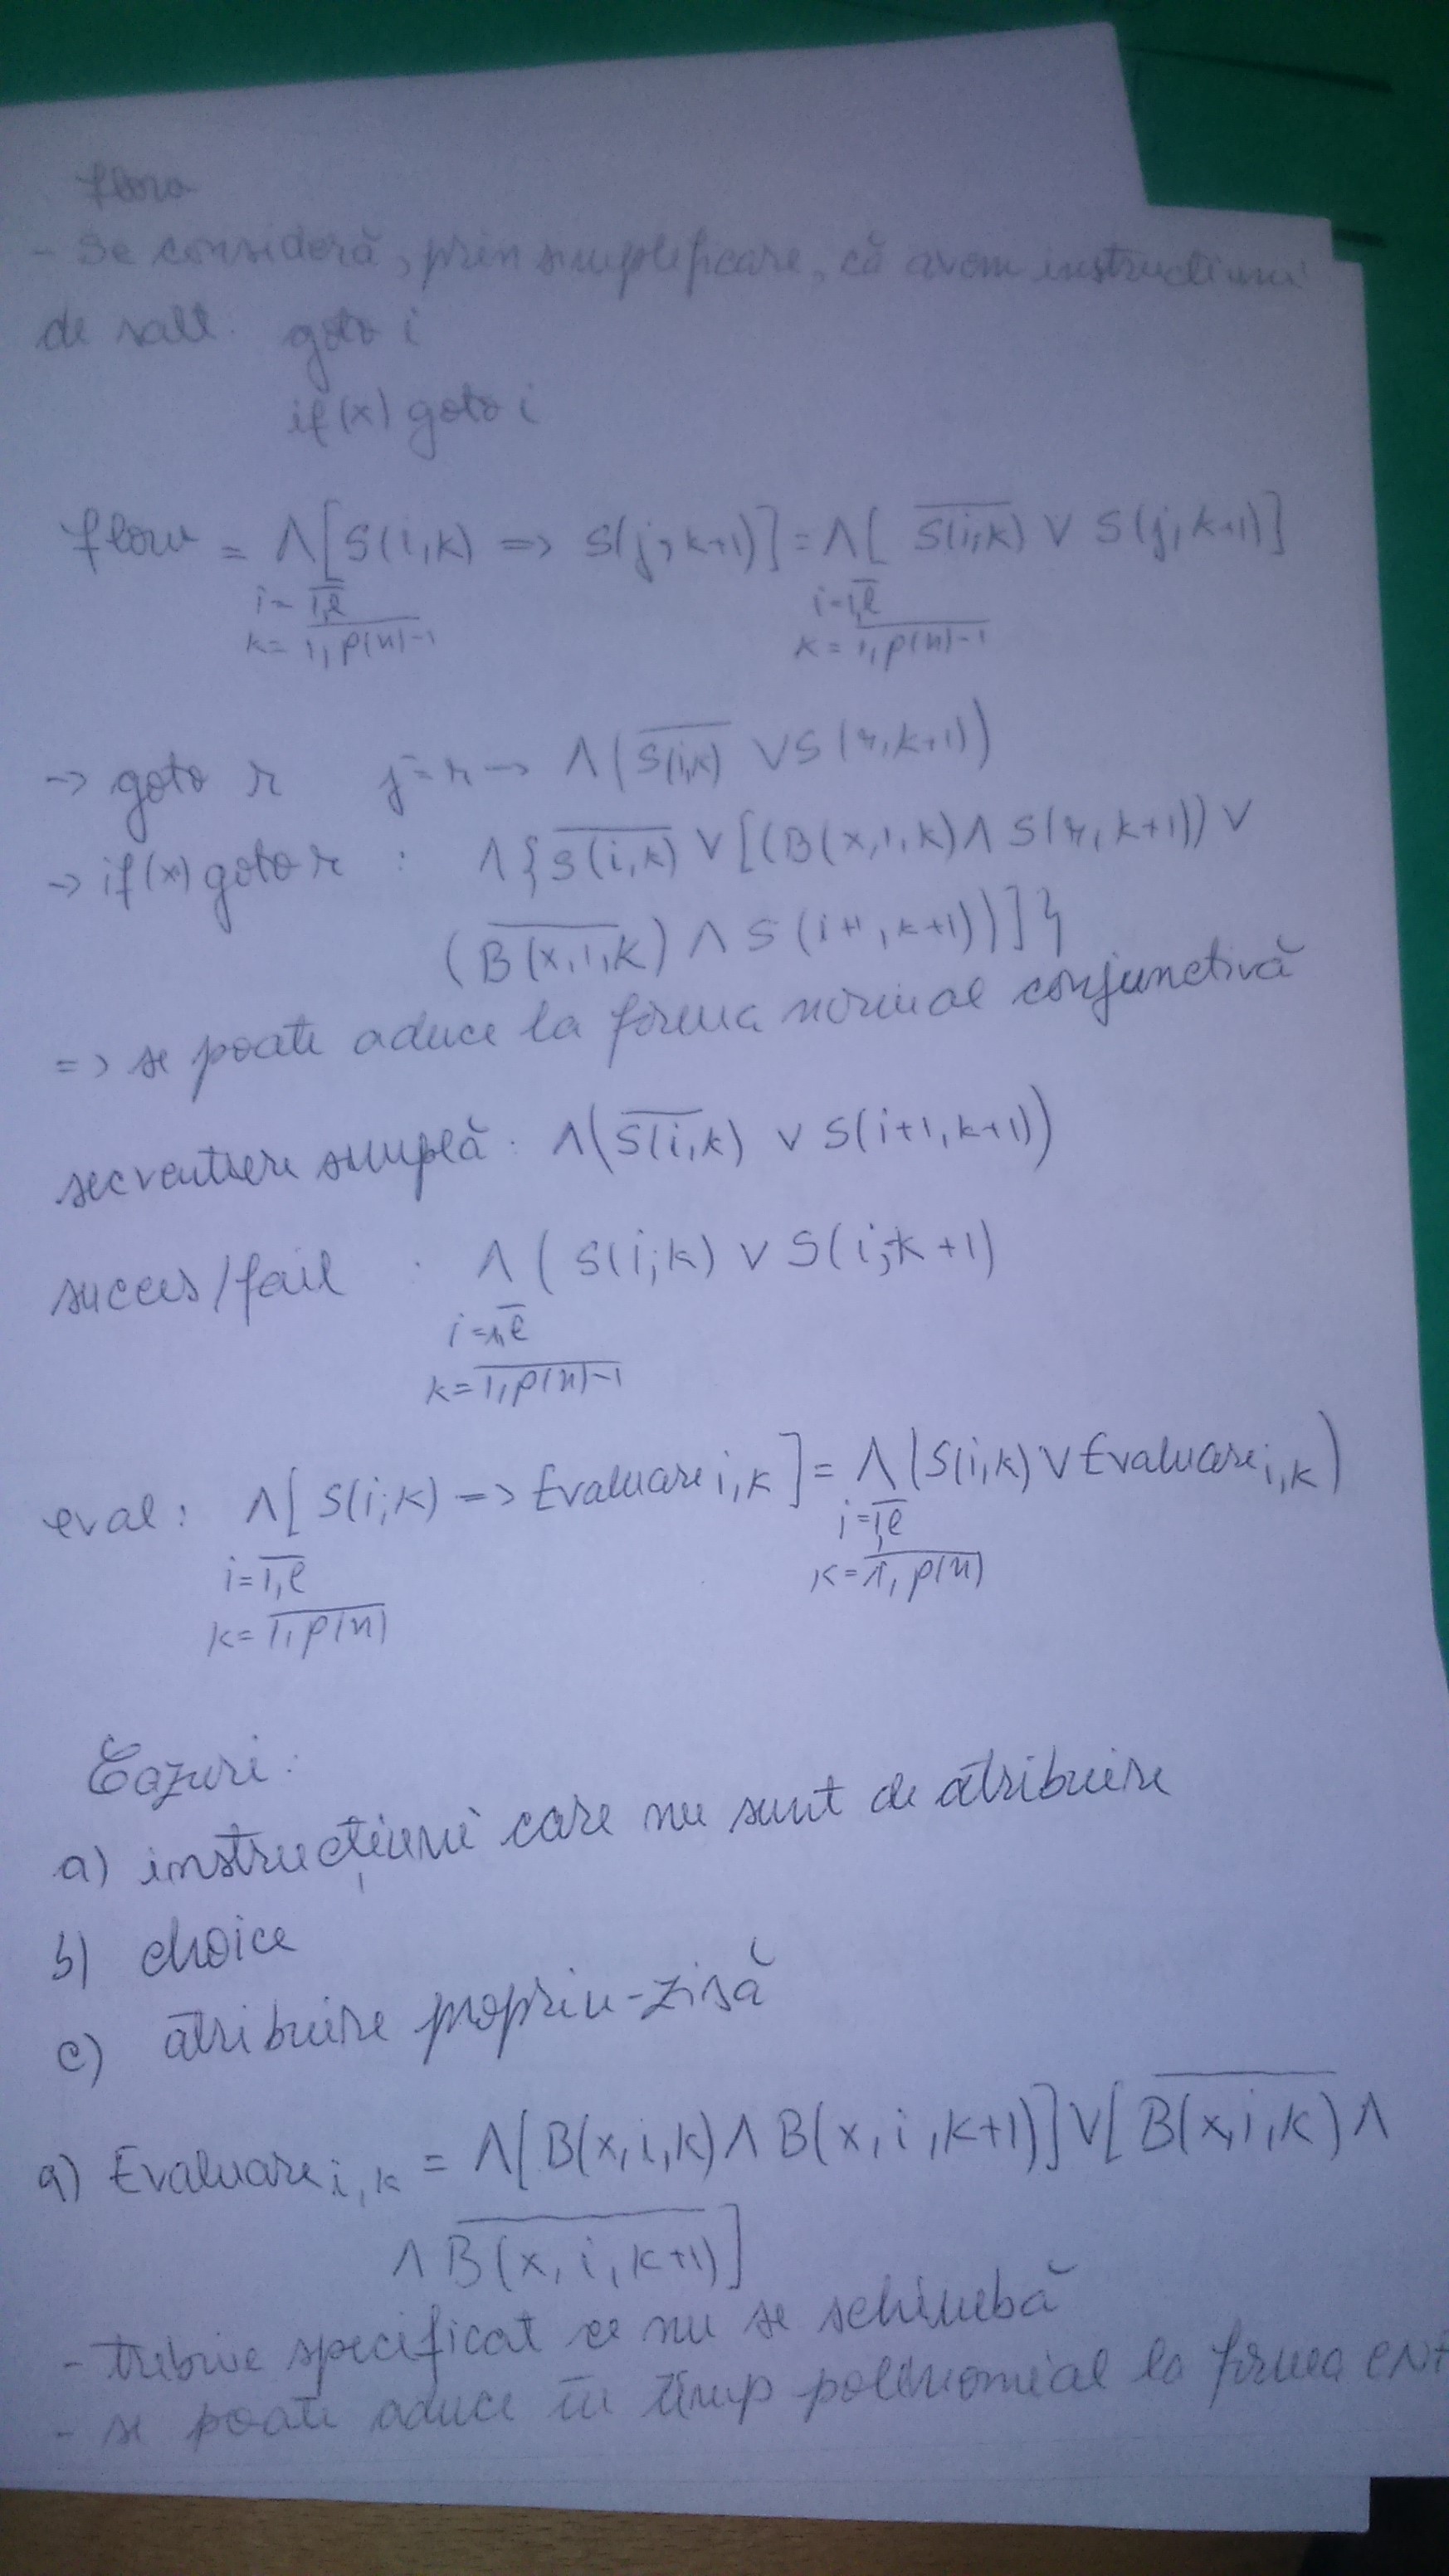 flow
- Se consideră, prin simplificare, că avem instructiuni
de salt. goto i
if(x) goto i
flow = ∧[S(i,k) => S(j,k+1)] = ∧[ \overline{S(i,k)} ∨ S(j,k+1)]
i=\overline{1,l} i=\overline{1,l}
k=\overline{1,p(n)-1} k=\overline{1,p(n)-1}
-> goto r j=r -> ∧(\overline{S(i,k)} ∨ S(r,k+1))
-> if(x) goto r : ∧{\overline{S(i,k)} ∨ [(B(x,1,k) ∧ S(r,k+1)) ∨
(\overline{B(x,1,k)} ∧ S(i+1,k+1))]}
=> se poate aduce la forma normal conjunctivă
simplă: ∧(\overline{S(i,k)} ∨ S(i+1,k+1))
succes/fail : ∧(S(i,k) ∨ S(i,k+1)
i=\overline{1,l}
k=\overline{1,p(n)-1}
eval: ∧[S(i,k) => Evaluare i,k] = ∧(S(i,k) ∨ Evaluare i,k)
i=\overline{1,l} i=\overline{1,l}
k=\overline{1,p(n)} k=\overline{1,p(n)}
Cazuri:
a) instrucțiuni care nu sunt de atribuire
b) choice
c) atribuire propriu-zisă
a) Evaluare i,k = ∧[B(x,i,k) ∧ B(x,i,k+1)] ∨ [\overline{B(x,i,k)} ∧
∧ \overline{B(x,i,k+1)}]
- trebuie specificat ce nu se schimbă
- se poate aduce în timp polinomial la forma